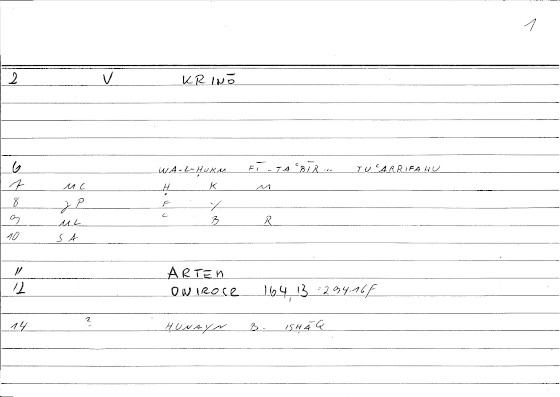 1
2 V KRINŌ
6 WA-L-ḤUKM FĪ-TAʿBĪR.. TUʿARRIFAHU
7 MC Ḥ K M
8 F Y
9 ML ʿ B R
10 SA
11 ARTEM
12 ONIROCR 164,13 = 294 16F
14 ? ḤUNAYN B. ISḤĀQ